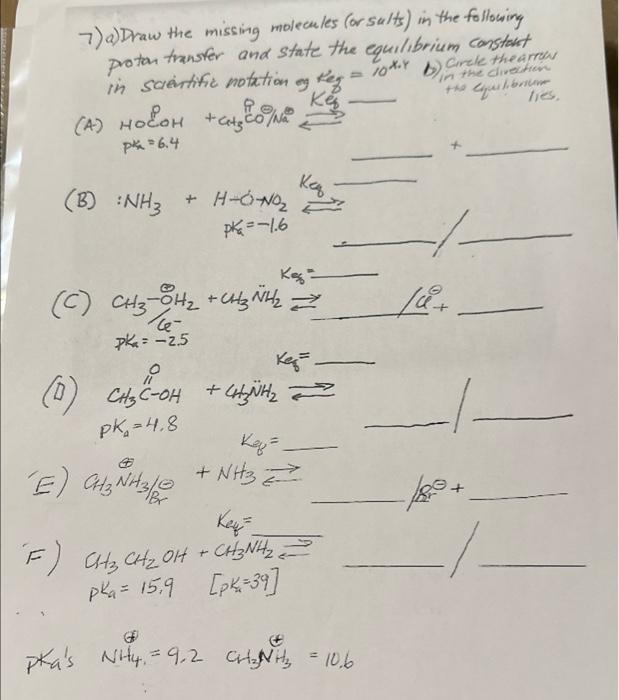 7) a) Draw the missing molecules (or salts) in the following
proton transfer and state the equilibrium constant
in scientific notation eg Keq = 10^x.y b) Circle the arrow
in the direction
the equilibrium
lies.
Keq ___
(A) HOCOH + CH3CO⊖/Na⊕ ⇌ ___ + ___
O O
pKa = 6.4
Keq ___
(B) :NH3 + H-Ö-NO2 ⇌ ___ / ___
pKa = -1.6
Keq = ___
(C) CH3-ÖH2 + CH3N̈H2 ⇌ ___ /Cl⊖ + ___
⊕
/Cl-
pKa = -2.5
O
Keq = ___
(D) CH3C-OH + CH3N̈H2 ⇌ ___ / ___
pKa = 4.8
Keq = ___
⊕
E) CH3NH3/⊖Br + NH3 ⇌ ___ /Br⊖ + ___
Keq = ___
F) CH3CH2OH + CH3NH2 ⇌ ___ / ___
pKa = 15.9 [pKa = 39]
⊕ ⊕
pKa's NH4 = 9.2 CH3NH3 = 10.6